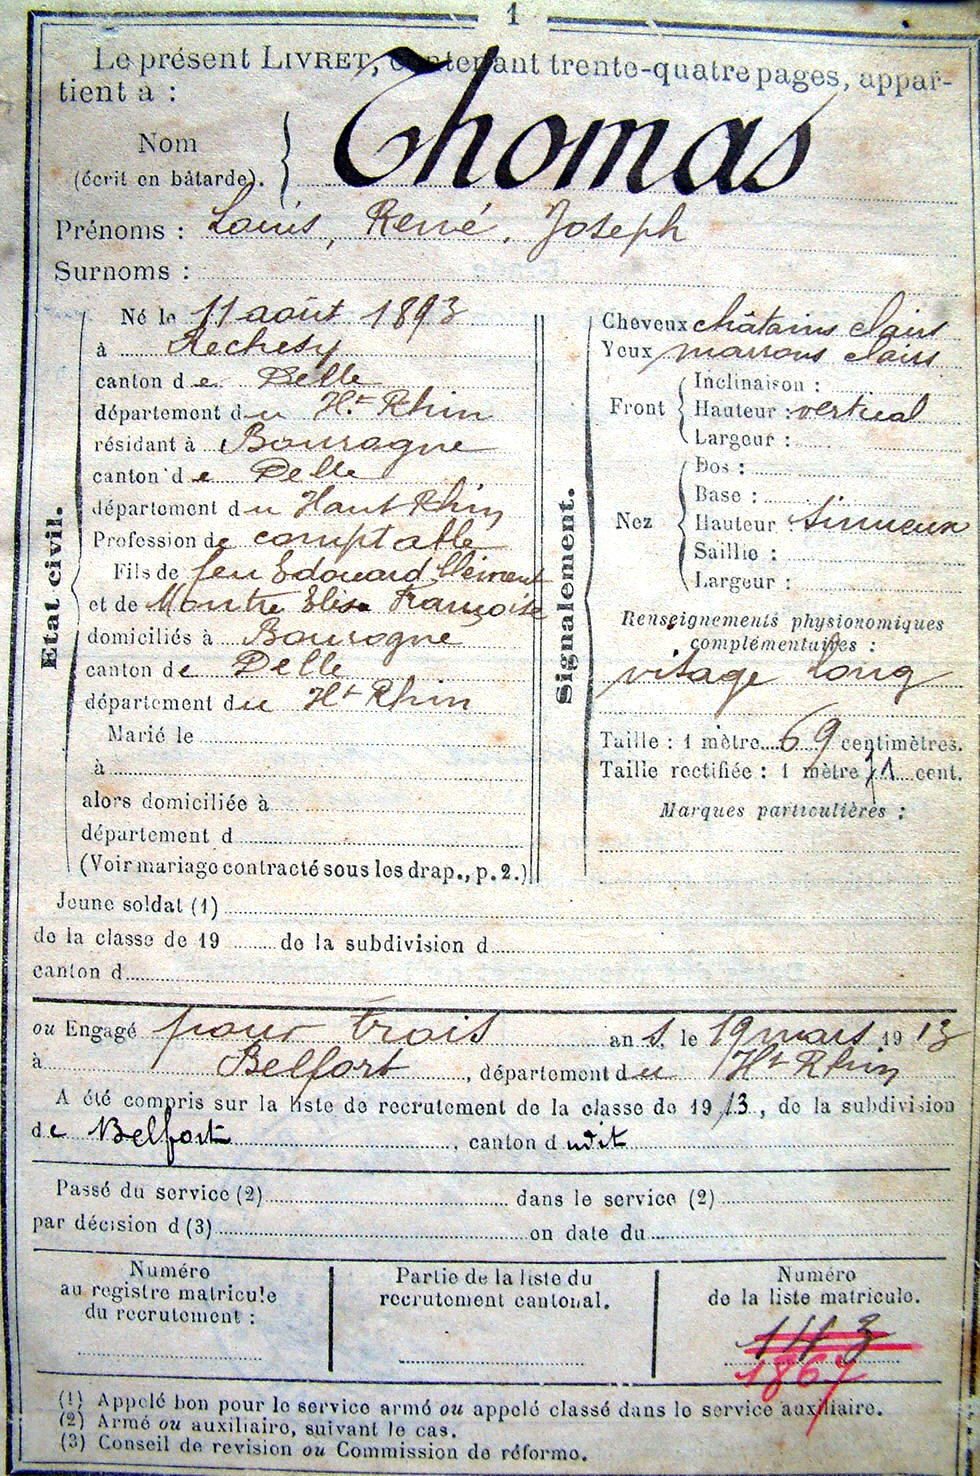 1
Le présent LIVRET, contenant trente-quatre pages, appar-
tient à :
Nom
(écrit en bâtarde).
Thomas
Prénoms : Louis, René, Joseph
Surnoms :
Etat civil.
Né le 11 août 1893
à Réchésy
canton de Delle
département du Ht Rhin
résidant à Bourogne
canton de Delle
département du Haut Rhin
Profession de comptable
Fils de feu Edouard Clément
et de Montre Elisa Françoise
domiciliés à Bourogne
canton de Delle
département du Ht Rhin
Marié le
à
alors domiciliée à
département d
(Voir mariage contracté sous les drap., p. 2.)
Signalement.
Cheveux châtains clairs
Yeux marrons clairs
Front
Inclinaison :
Hauteur : vertical
Largeur :
Nez
Dos :
Base :
Hauteur sinueux
Saillie :
Largeur :
Renseignements physionomiques
complémentaires :
visage long
Taille : 1 mètre 69 centimètres.
Taille rectifiée : 1 mètre 71 cent.
Marques particulières :
Jeune soldat (1)
de la classe de 19 de la subdivision d
canton d
ou Engagé pour trois ans, le 19 mars 1913
à Belfort, département du Ht Rhin
A été compris sur la liste de recrutement de la classe de 1913, de la subdivision
de Belfort, canton dudit
Passé du service (2) dans le service (2)
par décision d (3) en date du
Numéro
au registre matricule
du recrutement :
Partie de la liste du
recrutement cantonal.
Numéro
de la liste matricule.
1143
1867
(1) Appelé bon pour le service armé ou appelé classé dans le service auxiliaire.
(2) Armé ou auxiliaire, suivant le cas.
(3) Conseil de revision ou Commission de réforme.